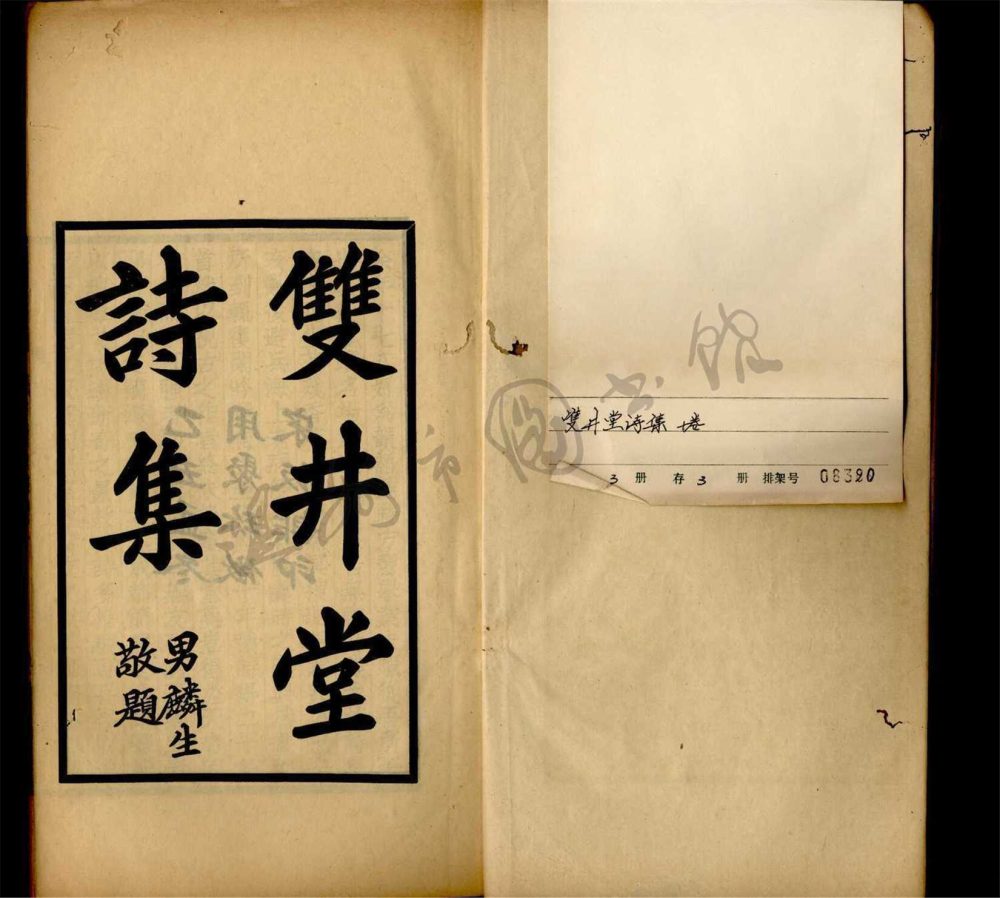 雙井堂
詩集
男麟生
敬題
雙井堂诗集
3 册 存 3 册 排架号 08320
市圖书館